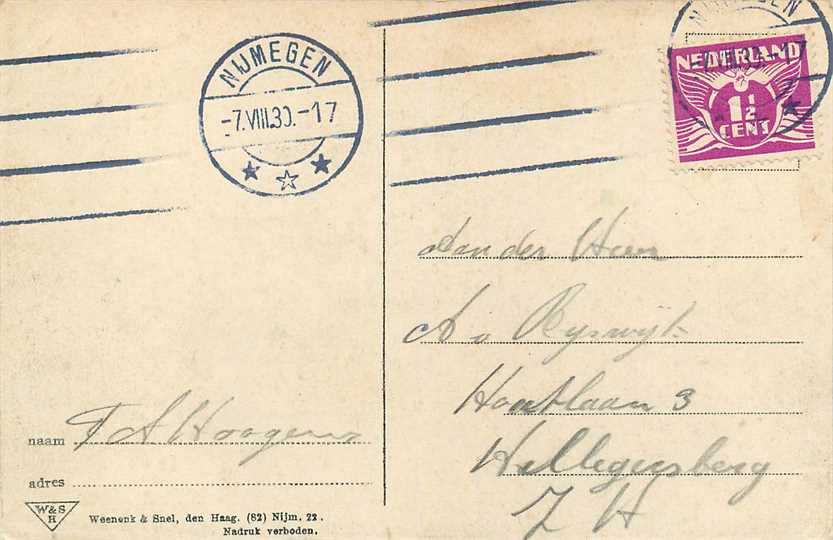 NIJMEGEN
-7.VIII.30.-17
NEDERLAND
1½
CENT
Aan den Heer
A v Ryswijk
laan 3
Hillegersberg
Z H
naam F A Hoogens
adres
W&S
H
Weenenk & Snel, den Haag. (82) Nijm. 22.
Nadruk verboden.